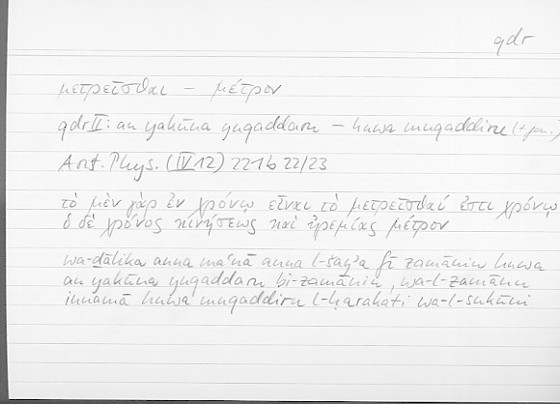 qdr
μετρεῖσθαι – μέτρον
qdr II: an yakūna yuqaddaru – huwa muqaddiru (+ gen.)
Arist. Phys. (IV 12) 221b 22/23
τὸ μὲν γὰρ ἐν χρόνῳ εἶναι τὸ μετρεῖσθαί ἐστι χρόνῳ
ὁ δὲ χρόνος κινήσεως καὶ ἠρεμίας μέτρον
wa-ḏālika anna maʿnā anna l-šayʾa fī zamānin huwa
an yakūna yuqaddaru bi-zamānin, wa-l-zamānu
innamā huwa muqaddiru l-ḥarakati wa-l-sukūni